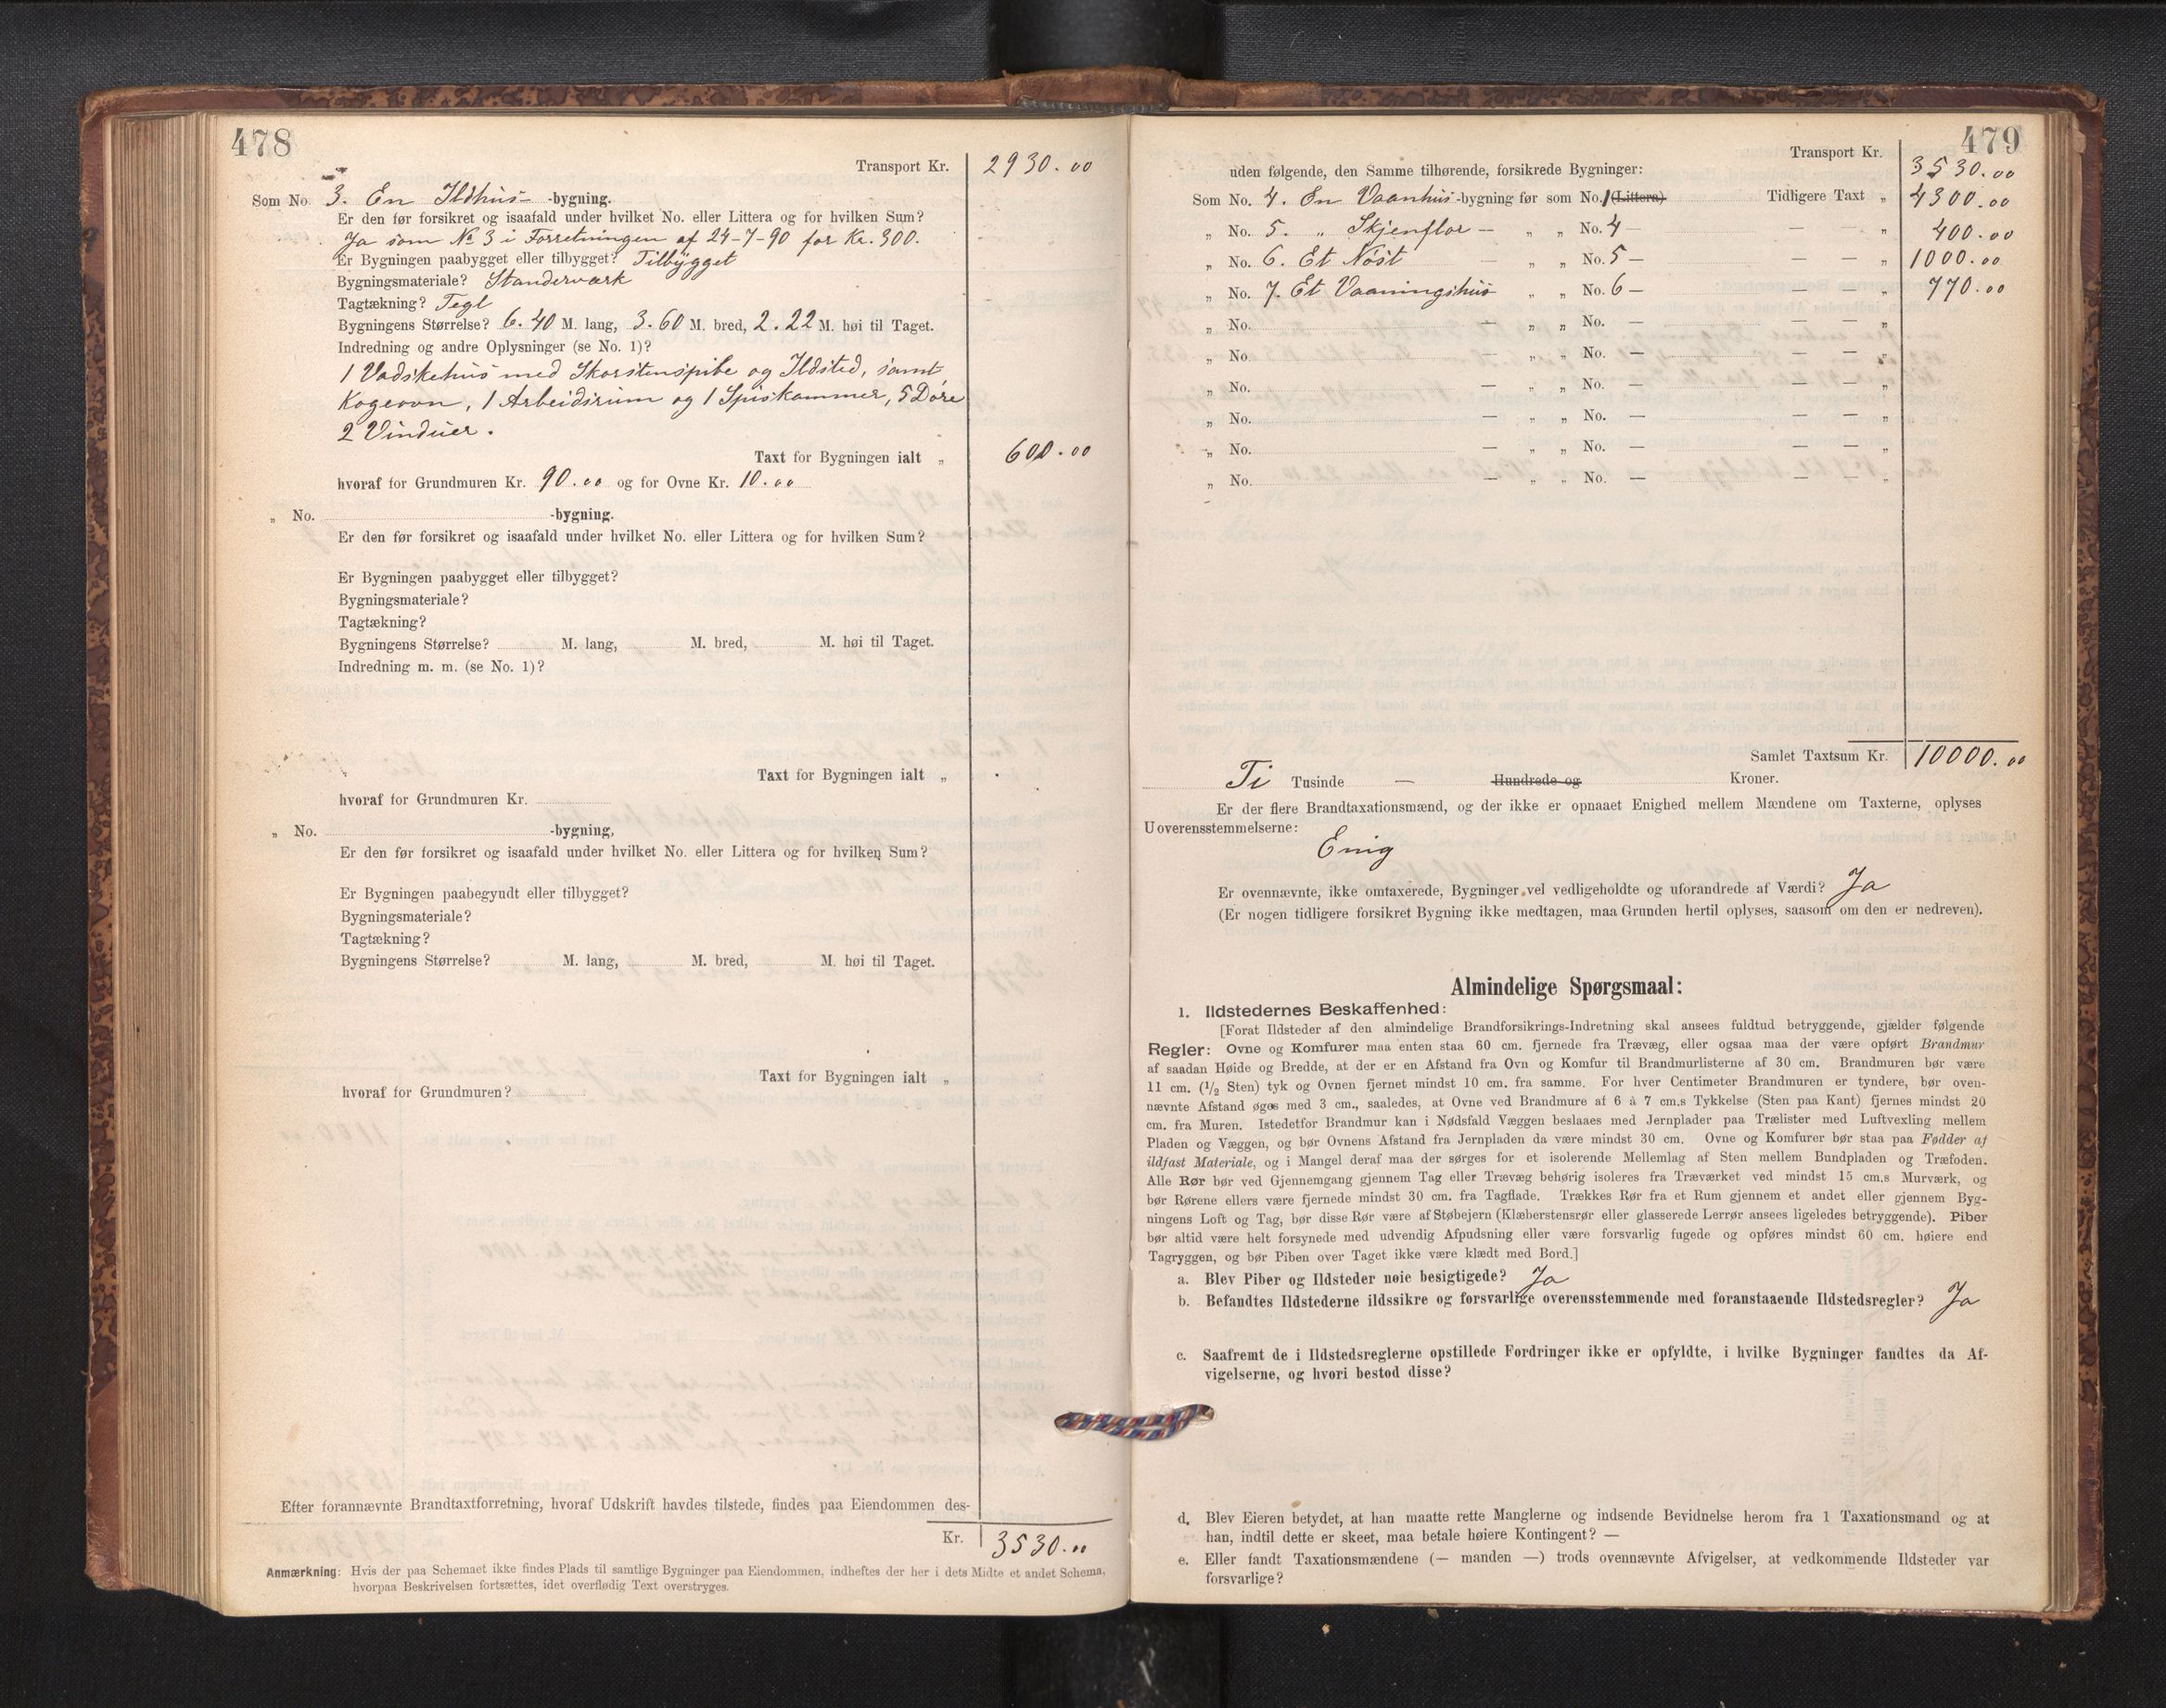 478
Transport Kr. 2930.00
Som No. 3. En Ildhus- -bygning.
Er den før forsikret og isaafald under hvilket No. eller Littera og for hvilken Sum?
Ja som No 3 i Forretningen af 24-7-90 for Kr. 300.
Er Bygningen paabygget eller tilbygget? Tilbygget
Bygningsmateriale? Standerværk
Tagtækning? Tegl
Bygningens Størrelse? 6.40 M. lang, 3.60 M. bred, 2.22 M. høi til Taget.
Indredning og andre Oplysninger (se No. 1)?
1 Vadskehus med Skorstenspibe og Ildsted, samt
Kogeovn, 1 Arbeidsrum og 1 Spiskammer, 5 Døre
2 Vinduer.
Taxt for Bygningen ialt „ 600.00
hvoraf for Grundmuren Kr. 90.00 og for Ovne Kr. 10.00
„ No. -bygning.
Er den før forsikret og isaafald under hvilket No. eller Littera og for hvilken Sum?
Er Bygningen paabygget eller tilbygget?
Bygningsmateriale?
Tagtækning?
Bygningens Størrelse? M. lang, M. bred, M. høi til Taget.
Indredning m. m. (se No. 1)?
Taxt for Bygningen ialt „
hvoraf for Grundmuren Kr.
„ No. -bygning,
Er den før forsikret og isaafald under hvilket No. eller Littera og for hvilken Sum?
Er Bygningen paabegyndt eller tilbygget?
Bygningsmateriale?
Tagtækning?
Bygningens Størrelse? M. lang, M. bred, M. høi til Taget.
Taxt for Bygningen ialt „
hvoraf for Grundmuren?
Efter forannævnte Brandtaxtforretning, hvoraf Udskrift havdes tilstede, findes paa Eiendommen des-
Kr. 3530.00
Anmærkning: Hvis der paa Schemaet ikke findes Plads til samtlige Bygninger paa Eiendommen, indheftes der her i dets Midte et andet Schema,
hvorpaa Beskrivelsen fortsættes, idet overflødig Text overstryges.
479
Transport Kr. 3530.00
uden følgende, den Samme tilhørende, forsikrede Bygninger:
Som No. 4. En Vaanhus-bygning før som No. 1 (Littera) Tidligere Taxt „ 4300.00
„ No. 5. „ Skjenflor — „ „ No. 4 — — — „ 400.00
„ No. 6. Et Nöst — „ „ No. 5 — — — „ 1000.00
„ No. 7. Et Vaaningshus „ „ No. 6 — — — „ 770.00
„ No. — „ „ No. — — — „
„ No. — „ „ No. — — — „
„ No. — „ „ No. — — — „
„ No. — „ „ No. — — — „
„ No. — „ „ No. — — — „
„ No. — „ „ No. — — — „
Samlet Taxtsum Kr. 10000.00
Ti Tusinde — Hundrede og Kroner.
Er der flere Brandtaxationsmænd, og der ikke er opnaaet Enighed mellem Mændene om Taxterne, oplyses
Uoverensstemmelserne:
Enig
Er ovennævnte, ikke omtaxerede, Bygninger vel vedligeholdte og uforandrede af Værdi? Ja
(Er nogen tidligere forsikret Bygning ikke medtagen, maa Grunden hertil oplyses, saasom om den er nedreven).
Almindelige Spørgsmaal:
1. Ildstedernes Beskaffenhed:
[Forat Ildsteder af den almindelige Brandforsikrings-Indretning skal ansees fuldtud betryggende, gjælder følgende
Regler: Ovne og Komfurer maa enten staa 60 cm. fjernede fra Trævæg, eller ogsaa maa der være opført Brandmur
af saadan Høide og Bredde, at der er en Afstand fra Ovn og Komfur til Brandmurlisterne af 30 cm. Brandmuren bør være
11 cm. (1/2 Sten) tyk og Ovnen fjernet mindst 10 cm. fra samme. For hver Centimeter Brandmuren er tyndere, bør oven-
nævnte Afstand øges med 3 cm., saaledes, at Ovne ved Brandmure af 6 à 7 cm.s Tykkelse (Sten paa Kant) fjernes mindst 20
cm. fra Muren. Istedetfor Brandmur kan i Nødsfald Væggen beslaaes med Jernplader paa Trælister med Luftvexling mellem
Pladen og Væggen, og bør Ovnens Afstand fra Jernpladen da være mindst 30 cm. Ovne og Komfurer bør staa paa Fødder af
ildfast Materiale, og i Mangel deraf maa der sørges for et isolerende Mellemlag af Sten mellem Bundpladen og Træfoden.
Alle Rør bør ved Gjennemgang gjennem Tag eller Trævæg behørig isoleres fra Træværket ved mindst 15 cm.s Murværk, og
bør Rørene ellers være fjernede mindst 30 cm. fra Tagflade. Trækkes Rør fra et Rum gjennem et andet eller gjennem Byg-
ningens Loft og Tag, bør disse Rør være af Støbejern (Klæberstensrør eller glasserede Lerrør ansees ligeledes betryggende). Piber
bør altid være helt forsynede med udvendig Afpudsning eller være forsvarlig fugede og opføres mindst 60 cm. høiere end
Tagryggen, og bør Piben over Taget ikke være klædt med Bord.]
a. Blev Piber og Ildsteder nøie besigtigede? Ja
b. Befandtes Ildstederne ildssikre og forsvarlige overensstemmende med foranstaaende Ildstedsregler? Ja
c. Saafremt de i Ildstedsreglerne opstillede Fordringer ikke er opfyldte, i hvilke Bygninger fandtes da Af-
vigelserne, og hvori bestod disse?
d. Blev Eieren betydet, at han maatte rette Manglerne og indsende Bevidnelse herom fra 1 Taxationsmand og at
han, indtil dette er skeet, maa betale høiere Kontingent? —
e. Eller fandt Taxationsmændene (— manden —) trods ovennævnte Afvigelser, at vedkommende Ildsteder var
forsvarlige?